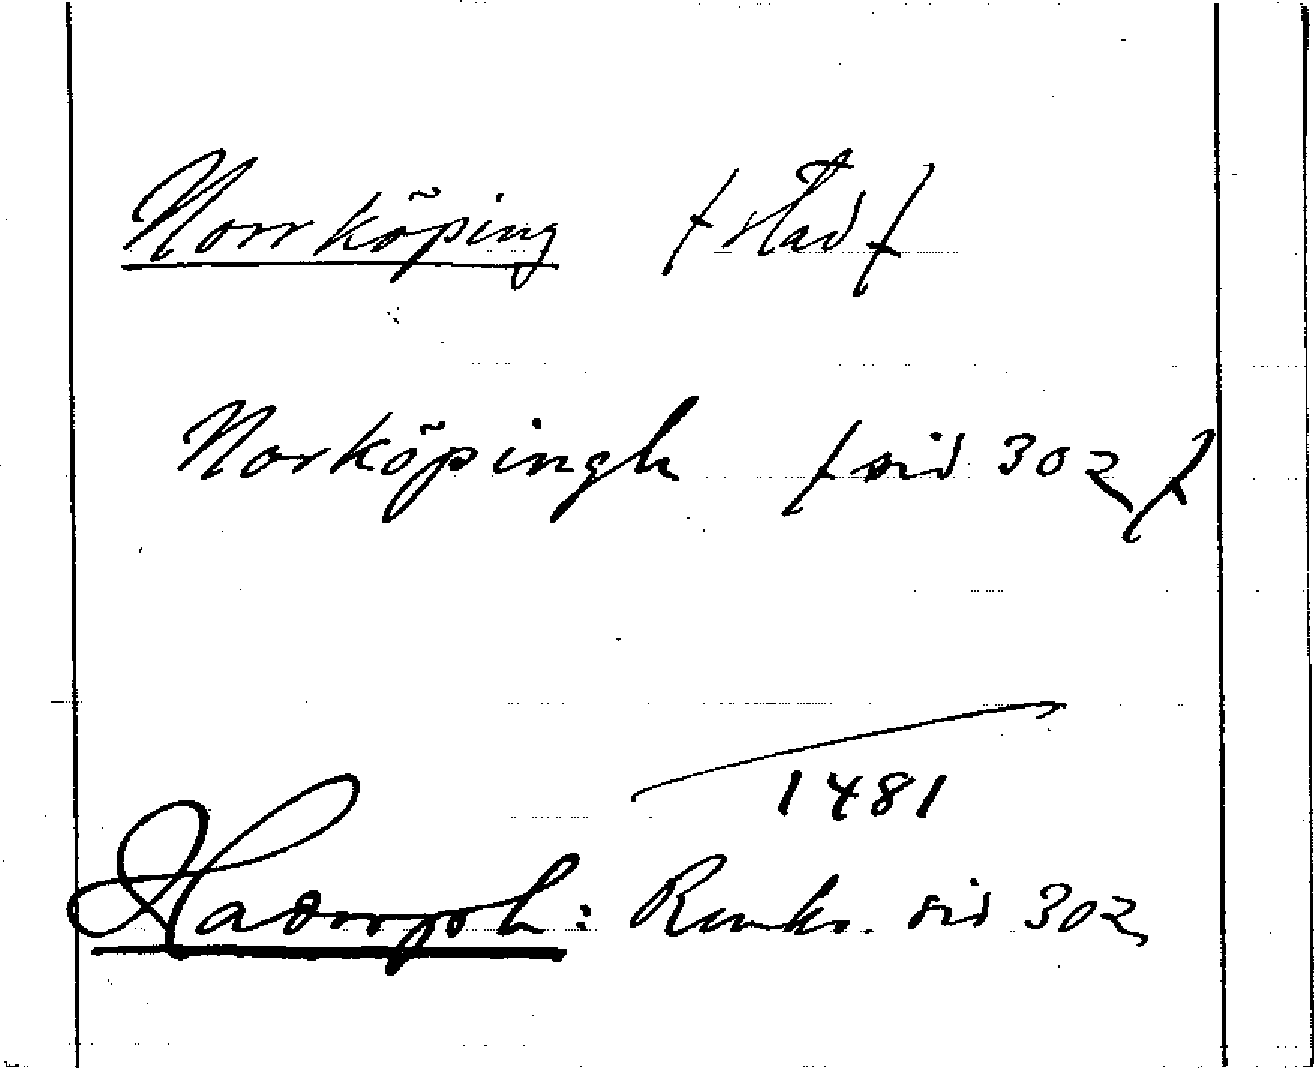 Norrköping /stad/
Norköpingh /sid 302/
1481
Hadorph: Rimkr. sid 302